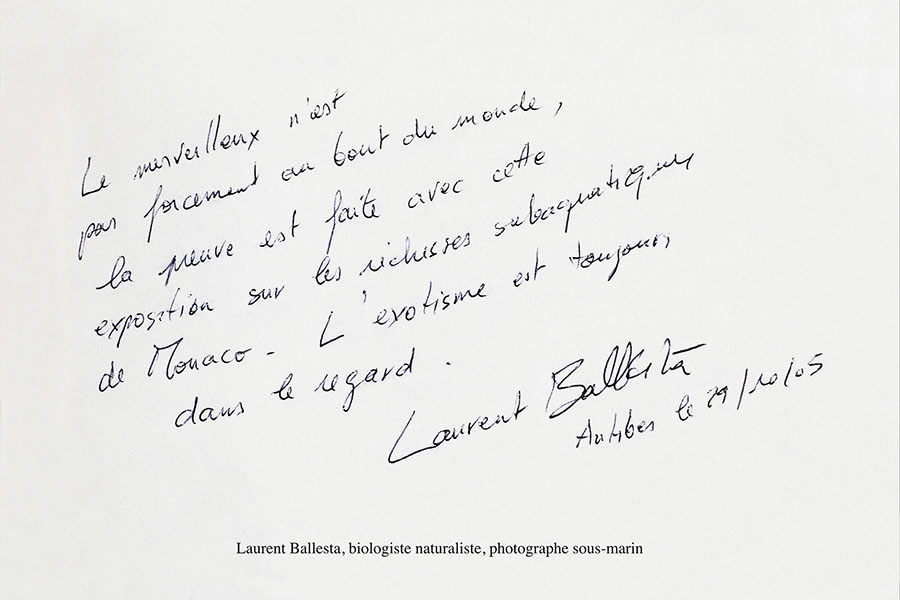 Le merveilleux n'est
pas forcement au bout du monde,
la preuve est faite avec cette
exposition sur les richesses subaquatiques
de Monaco - L'exotisme est toujours
dans le regard.
Laurent Ballesta
Antibes le 29/10/05
Laurent Ballesta, biologiste naturaliste, photographe sous-marin